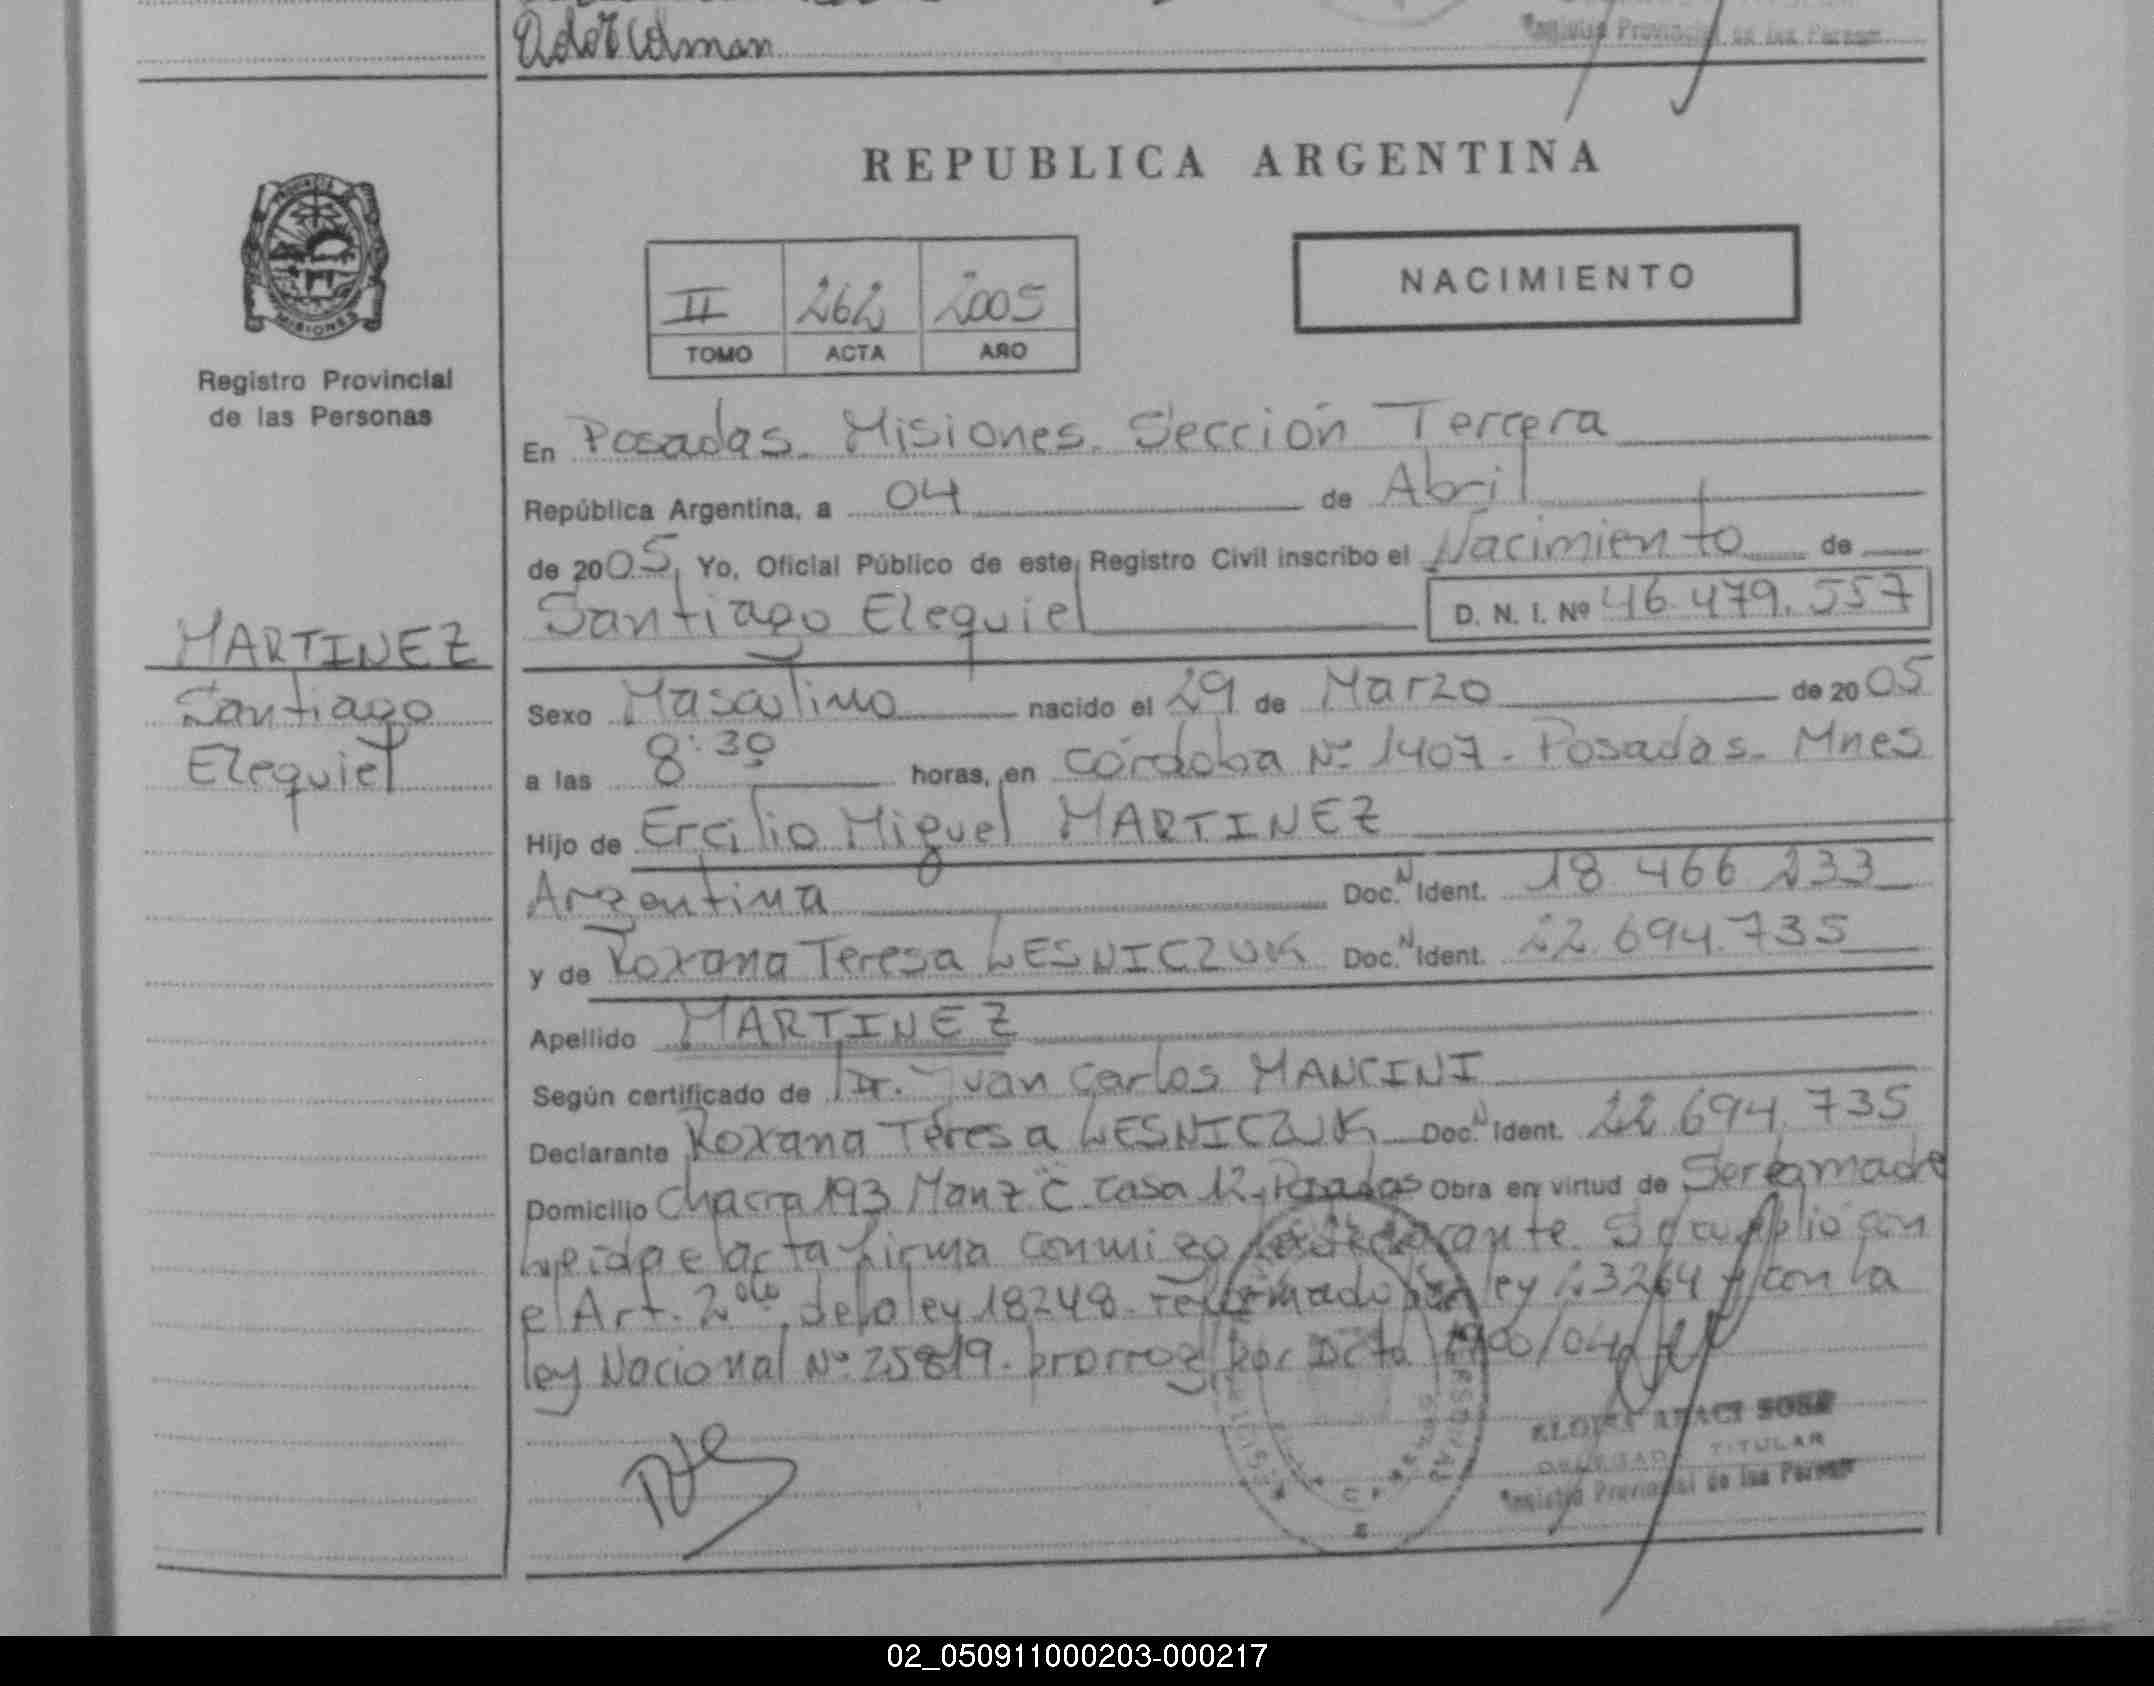 Registro Provincial de las Personas
REPUBLICA ARGENTINA
MISIONES
II 262 2005
TOMO ACTA AÑO
NACIMIENTO
Registro Provincial
de las Personas
En Posadas. Misiones. Sección Tercera
República Argentina, a 04 de Abril
de 2005, Yo, Oficial Público de este Registro Civil inscribo el Nacimiento de
Santiago Ezequiel D. N. I. Nº 46.479.557
MARTINEZ
Santiago
Ezequiel
Sexo Masculino nacido el 29 de Marzo de 2005
a las 8:30 horas, en Córdoba Nº 1407 - Posadas - Mnes
Hijo de Ercilio Miguel MARTINEZ
Argentina Doc. N Ident. 18 466 233
y de Roxana Teresa LESNICZUK Doc. N Ident. 22.694.735
Apellido MARTINEZ
Según certificado de Dr. Juan Carlos MANCINI
Declarante Roxana Teresa LESNICZUK Doc. N Ident. 22.694.735
Domicilio Chacra 193 Manz C casa 12, Posadas Obra en virtud de Ser la madre
Leida el acta firma conmigo la declarante. Se cumplio con
el Art. 2do de la ley 18248 - reformado por ley 23264 y con la
ley Nacional Nº 25819 - prorrog por Dcto 1900/04
TITULAR
Registro Provincial de las Person
02_050911000203-000217